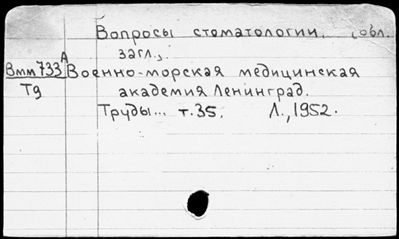 Вопросы стоматологии. (обл.
загл.).
Вмм733А Военно-морская медицинская
Тд академия Ленинград.
Труды... т.35. Л., 1952.